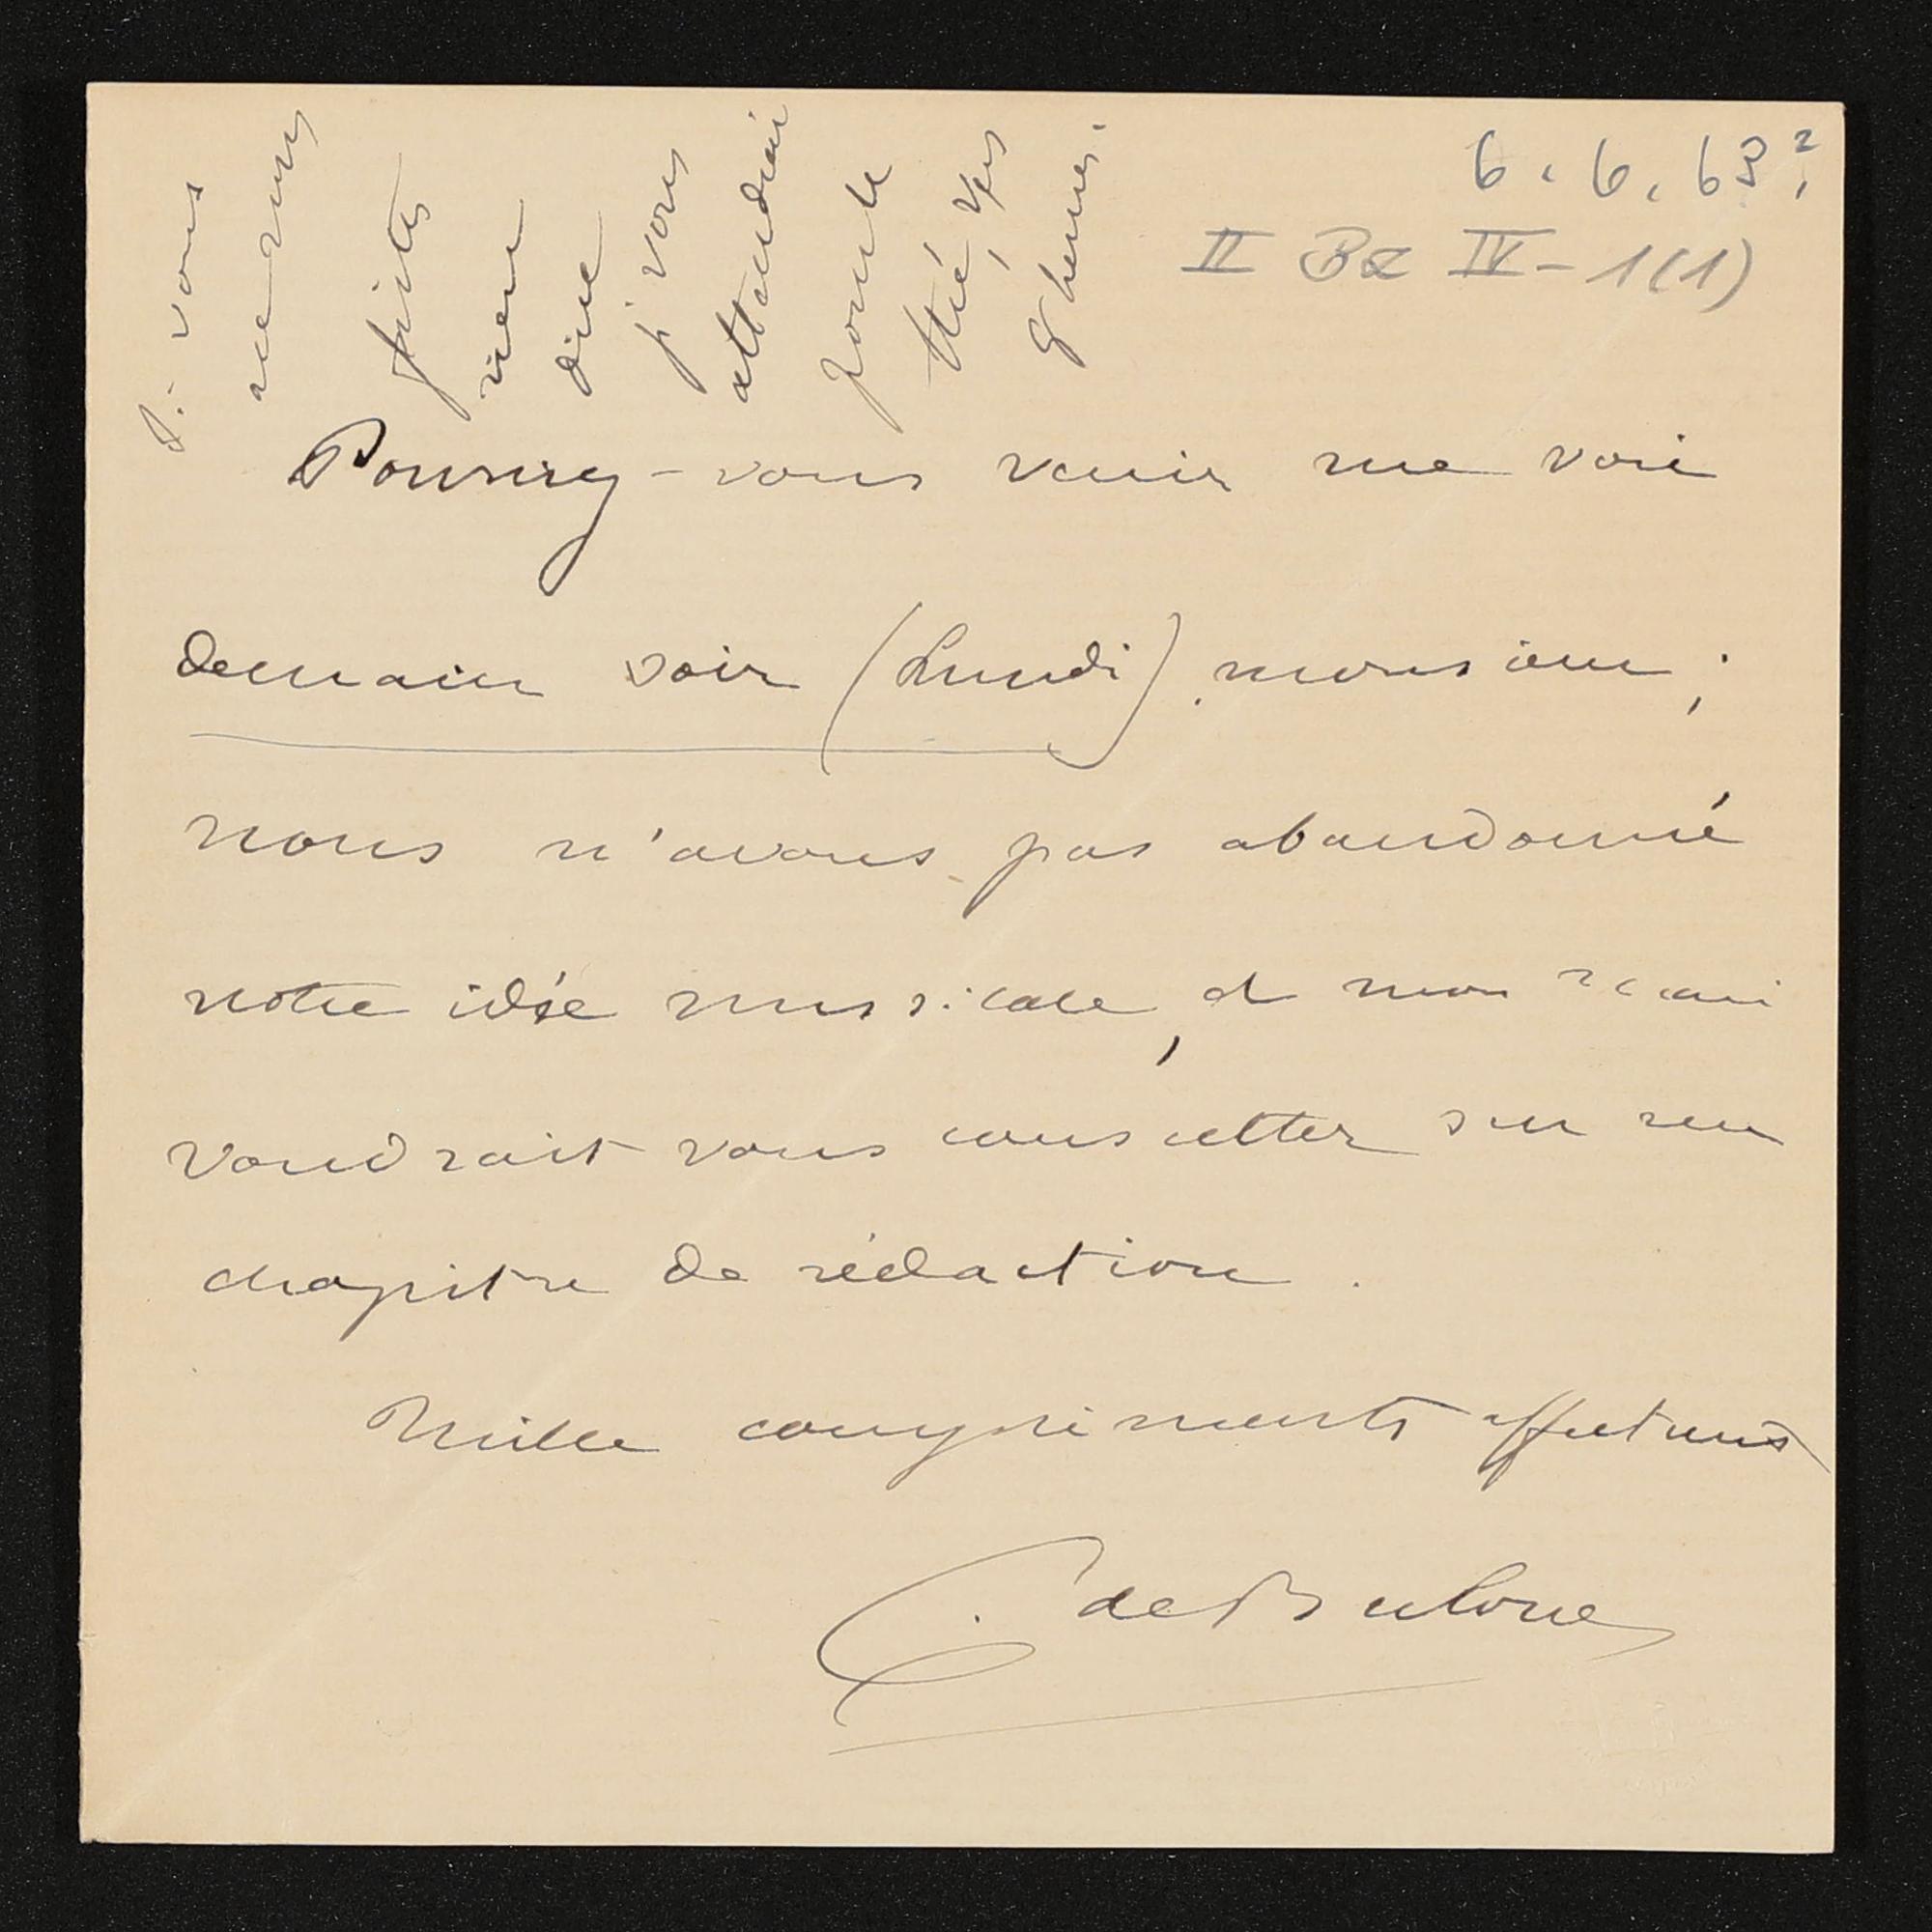 6. 6. 63?
II Bz IV - 1(1)
Si vous
ne me
faites
rien
dire
je vous
attendrai
pour le
thé, vers
9 heures.
Pourriez-vous venir me voir
demain soir (Lundi), monsieur;
nous n'avons pas abandonné
notre idée musicale, et mon mari
voudrait vous consulter sur un
chapitre de rédaction.
Mille compliments affectueux
C. de Bulow